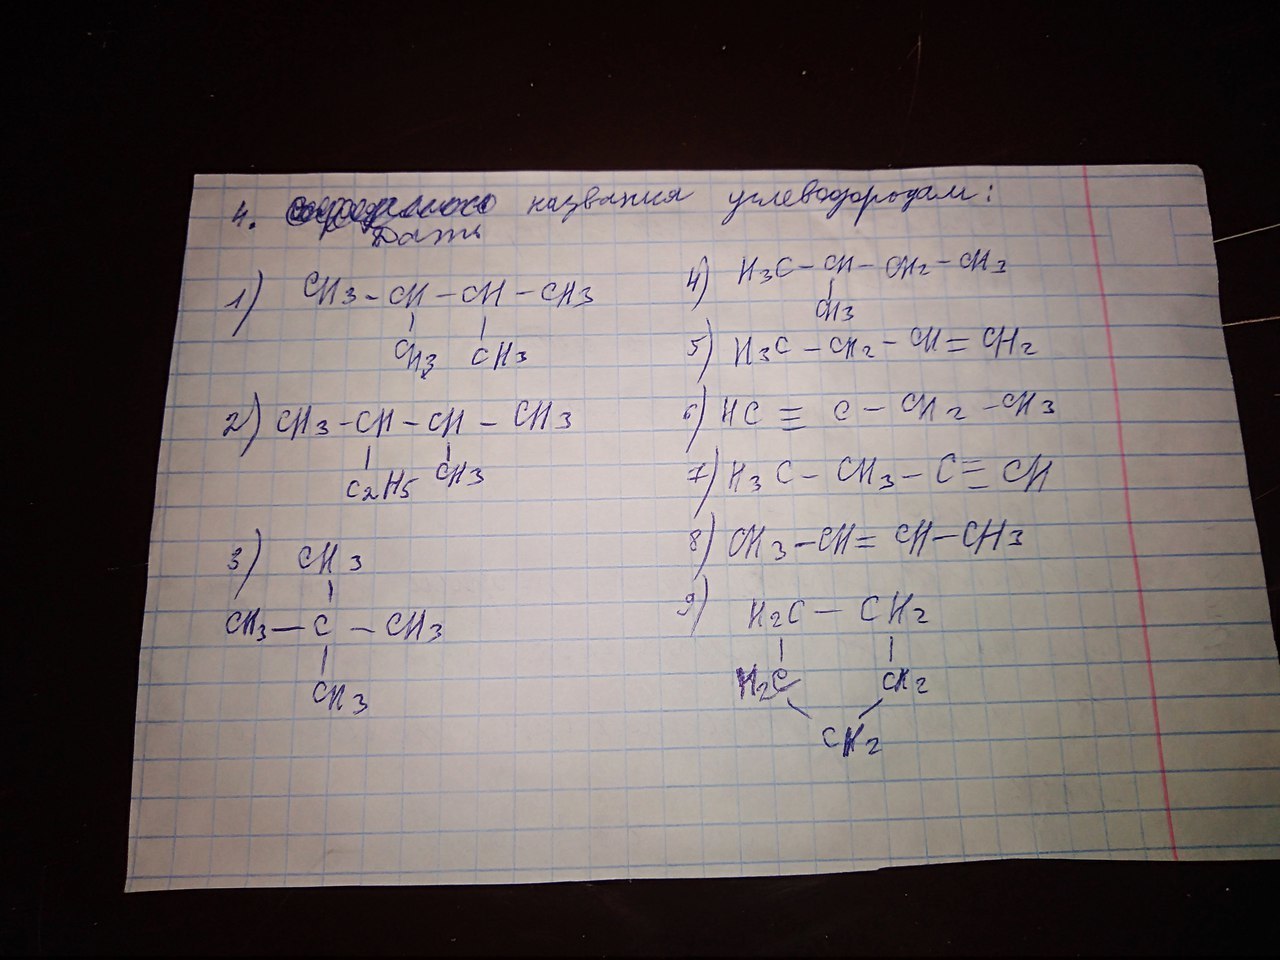 4. названия углеводородам:
Дать
1) CH3 - CH - CH - CH3
CH3 CH3
2) CH3 - CH - CH - CH3
C2H5 CH3
3) CH3
CH3 - C - CH3
CH3
4) H3C - CH - CH2 - CH3
CH3
5) H3C - CH2 - CH = CH2
6) HC ≡ C - CH2 - CH3
7) H3C - CH3 - C ≡ CH
8) CH3 - CH = CH - CH3
9) H2C - CH2
H2C CH2
CH2